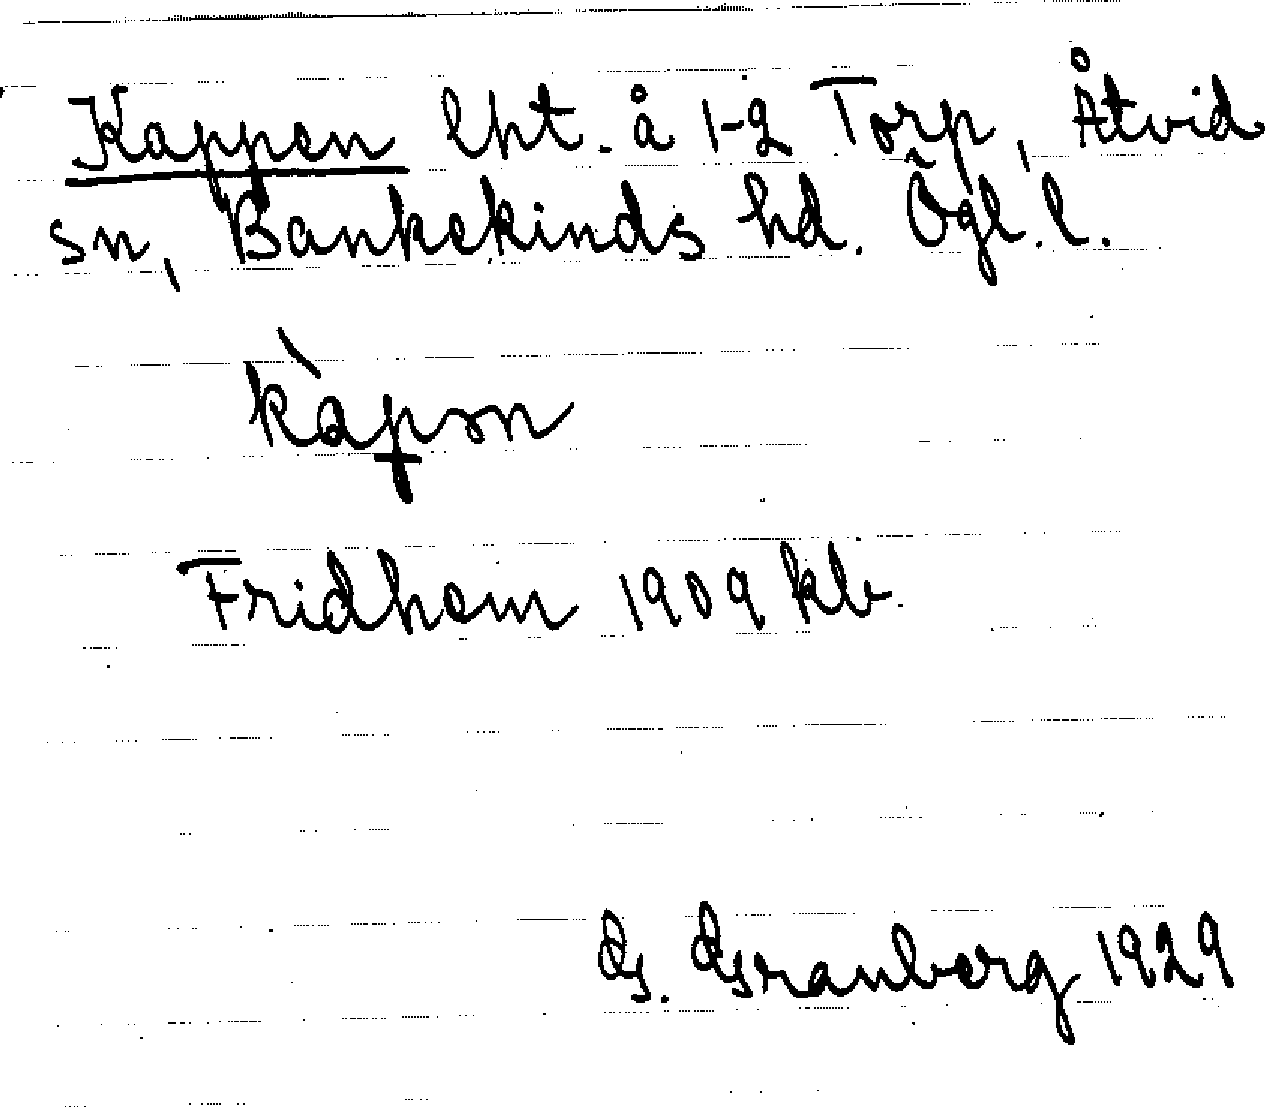 Kappen lht. å 1-2 Torp, Åtvid
sn, Bankekinds hd. Ögl. l.
kàpon
Fridhem 1909 kb.
G. Granberg 1929